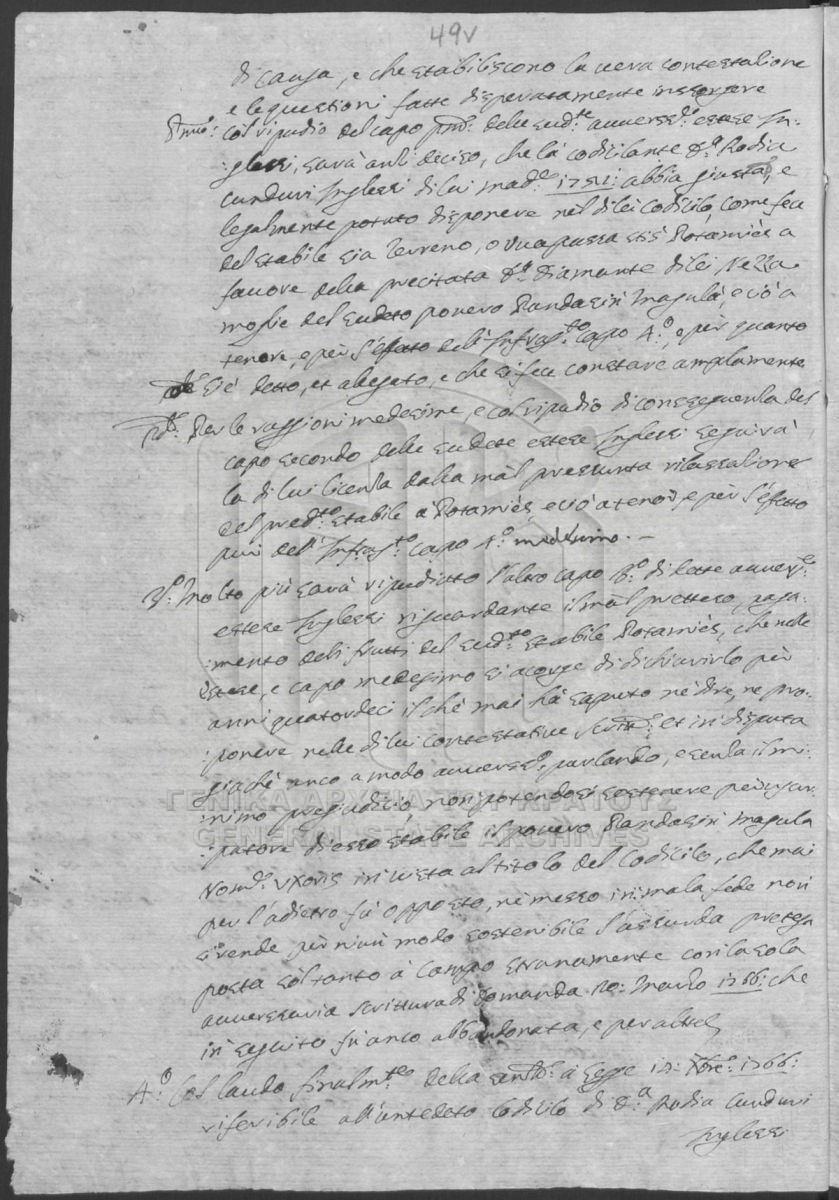 49v
di causa, e che stabiliscono la uera contestatione
e le questioni fatte disperatamente insorgere
Pmo: Col ripudio del capo pmo: delle sudte: auuersse: estese In-
:glessi, sarà anti deciso, che la codicilante Sa: Rodia
Cunduri Inglessi di lui made: 1751: abbia giusta, e
legalmente potuto disponere nel di lei Codicilo, come fece
del stabile sia Terreno, o Vua passa Stis Potamiès a
fauore della precitata Sa: Diamante di lei Nezza
moglie del sudeto pouero Pandasin Magulà, e ciò a
tenore, e per l'effeto dell'Infrasto: Capo 4o:, e per quanto
si è detto, et alegato, e che si fece constare amplamente
2do: Per le raggioni medesime, e col ripudio di conseguenza del
capo secondo delle sudete estese Inglessi seguirà
la di lui licenza dalla mal pressunta rilassatione
del predto: stabile à Potamiès, e ciò a tenor, e per l'effetto
puri dell'Infrasto: capo 4o: medesimo. —
3o: Molto più sarà ripudiatto l'altro capo 3o: di dette auuerse:
estese Inglessi risguardante il mal pretteso, paga-
:mento deli frutti del sudto: stabile Potamiès, che nelle
estese, e capo medesimo si acorge di dichiarirlo per
anni quatordeci il chè mai hà saputo nè dire, ne pro-
:ponere nelle di lui contestatiue Scritte: et in disputa
giachè anco a modo auuerso, parlando, e senza il mi-
:nimo pregiudicio, non potendosi sostenere per usur-
:patore di esso stabile il pouero Pandasin Magula
Nome: Vxoris in uista al titolo del Codicilo, che mai
per l'adietro fù opposto, nè messo in mala fede non
si rende per niun modo sostenibile l'assurda pretesa
posta soltanto à Campo stranamente con la sola
auuersaria scrittura di Domanda 10: Marzo 1766: che
in seguito fù anco abbandonata, e per altro
4o: Col laudo finalmte: della sentza: à Legge 12: Xbre: 1766:
riferibile all'antedeto Codicilo di Sa: Rodia Cunduri
Inglessi
ΓΕΝΙΚΑ ΑΡΧΕΙΑ ΤΟΥ ΚΡΑΤΟΥΣ
GENERAL STATE ARCHIVES